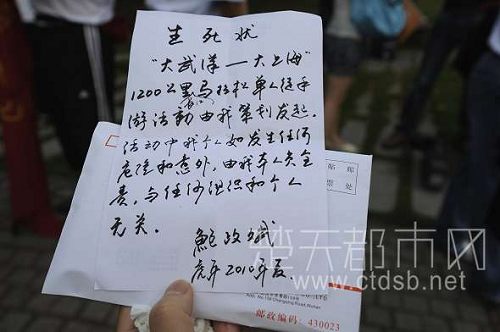 生死状
"大武漢—大上海"
1200公里马拉松单人徒手
游活动由我策划发起.
活动中我个人如发生任何
危险和意外,由我本人负全
责,与任何组织和个人
无关.
鲍政斌
虎年2010年夏
贴 邮
票 处
Changqing Road Wuhan
邮政编码: 430023
楚天都市网
www.ctdsb.net